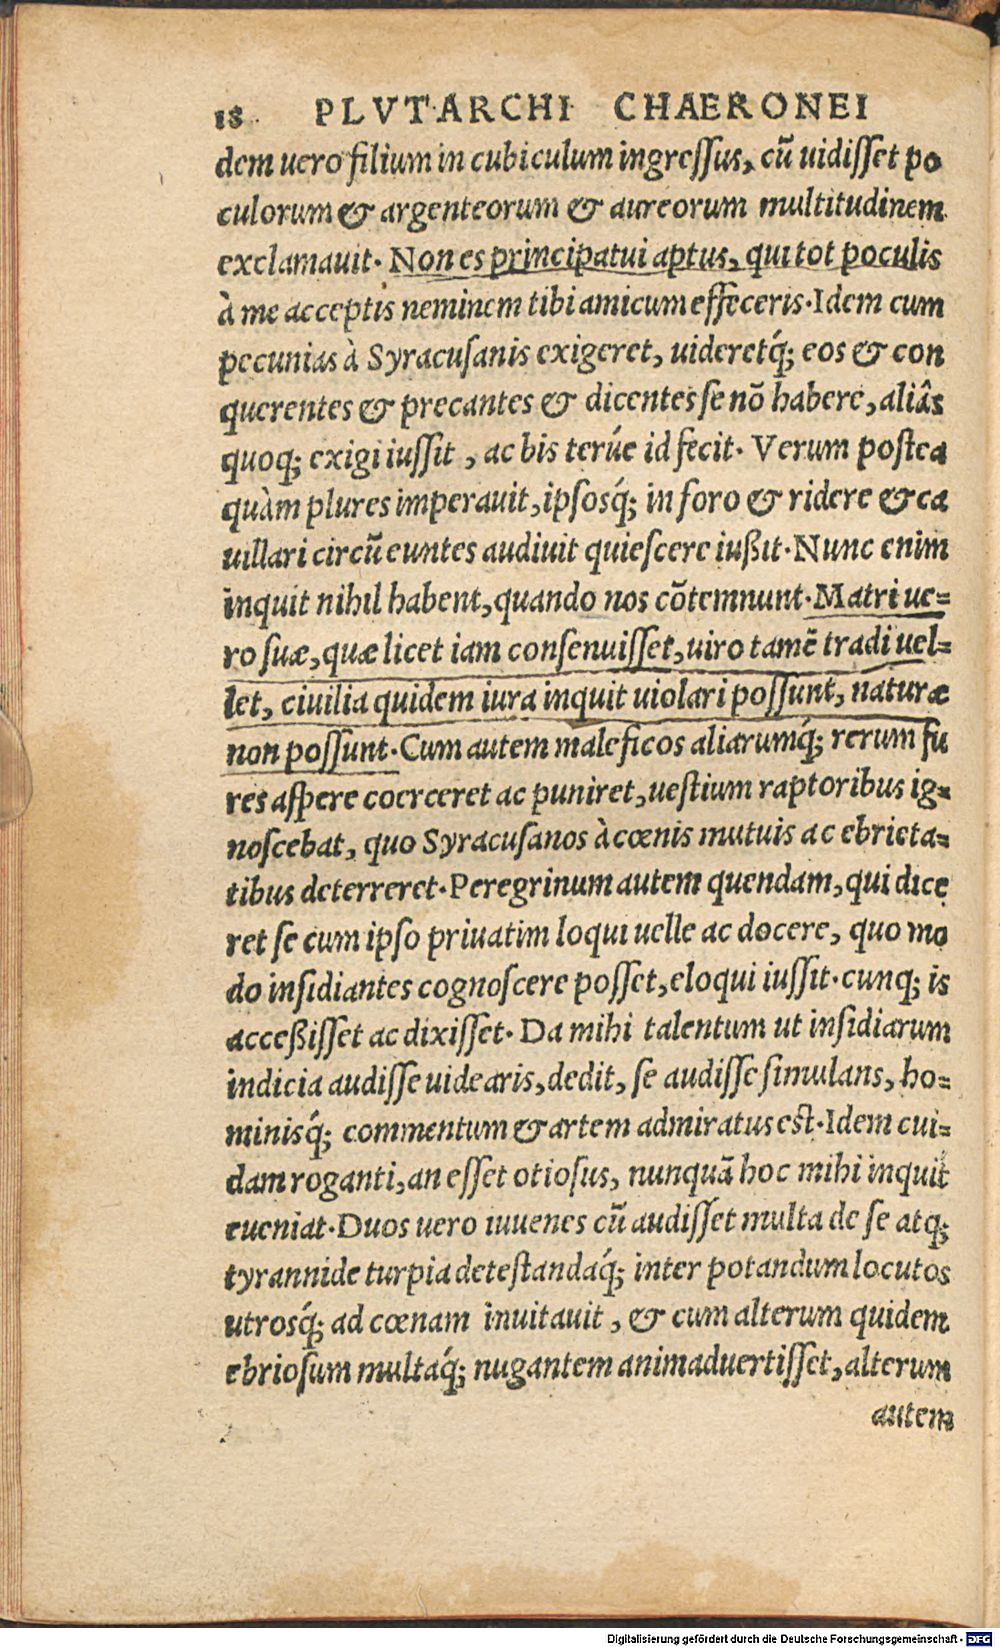 18 PLVTARCHI CHAERONEI
dem uero filium in cubiculum ingressus, cũ uidisset po
culorum & argenteorum & aureorum multitudinem
exclamauit. Non es principatui aptus, qui tot poculis
à me acceptis neminem tibi amicum effeceris. Idem cum
pecunias à Syracusanis exigeret, uideretq́; eos & con
querentes & precantes & dicentes se nõ habere, aliâs
quoq; exigi iussit, ac bis terúe id fecit. Verum postea
quàm plures imperauit, ipsosq́; in foro & ridere & ca
uillari circũ euntes audiuit quiescere iußit. Nunc enim
inquit nihil habent, quando nos cõtemnunt. Matri ue=
ro suæ, quæ licet iam consenuisset, uiro tamẽ tradi uel=
let, ciuilia quidem iura inquit uiolari possunt, naturæ
non possunt. Cum autem maleficos aliarumq́; rerum fu
res aspere coerceret ac puniret, uestium raptoribus ig=
noscebat, quo Syracusanos à cœnis mutuis ac ebrieta=
tibus deterreret. Peregrinum autem quendam, qui dice
ret se cum ipso priuatim loqui uelle ac docere, quo mo
do insidiantes cognoscere posset, eloqui iussit. cunq; is
acceßisset ac dixisset. Da mihi talentum ut insidiarum
indicia audisse uidearis, dedit, se audisse simulans, ho=
minisq́; commentum & artem admiratus est. Idem cui=
dam roganti, an esset otiosus, nunquã hoc mihi inquit
eueniat. Duos uero iuuenes cũ audisset multa de se atq;
tyrannide turpia detestandaq́; inter potandum locutos
utrosq́; ad cœnam inuitauit, & cum alterum quidem
ebriosum multaq́; nugantem animaduertisset, alterum
autem
Digitalisierung gefördert durch die Deutsche Forschungsgemeinschaft - DFG